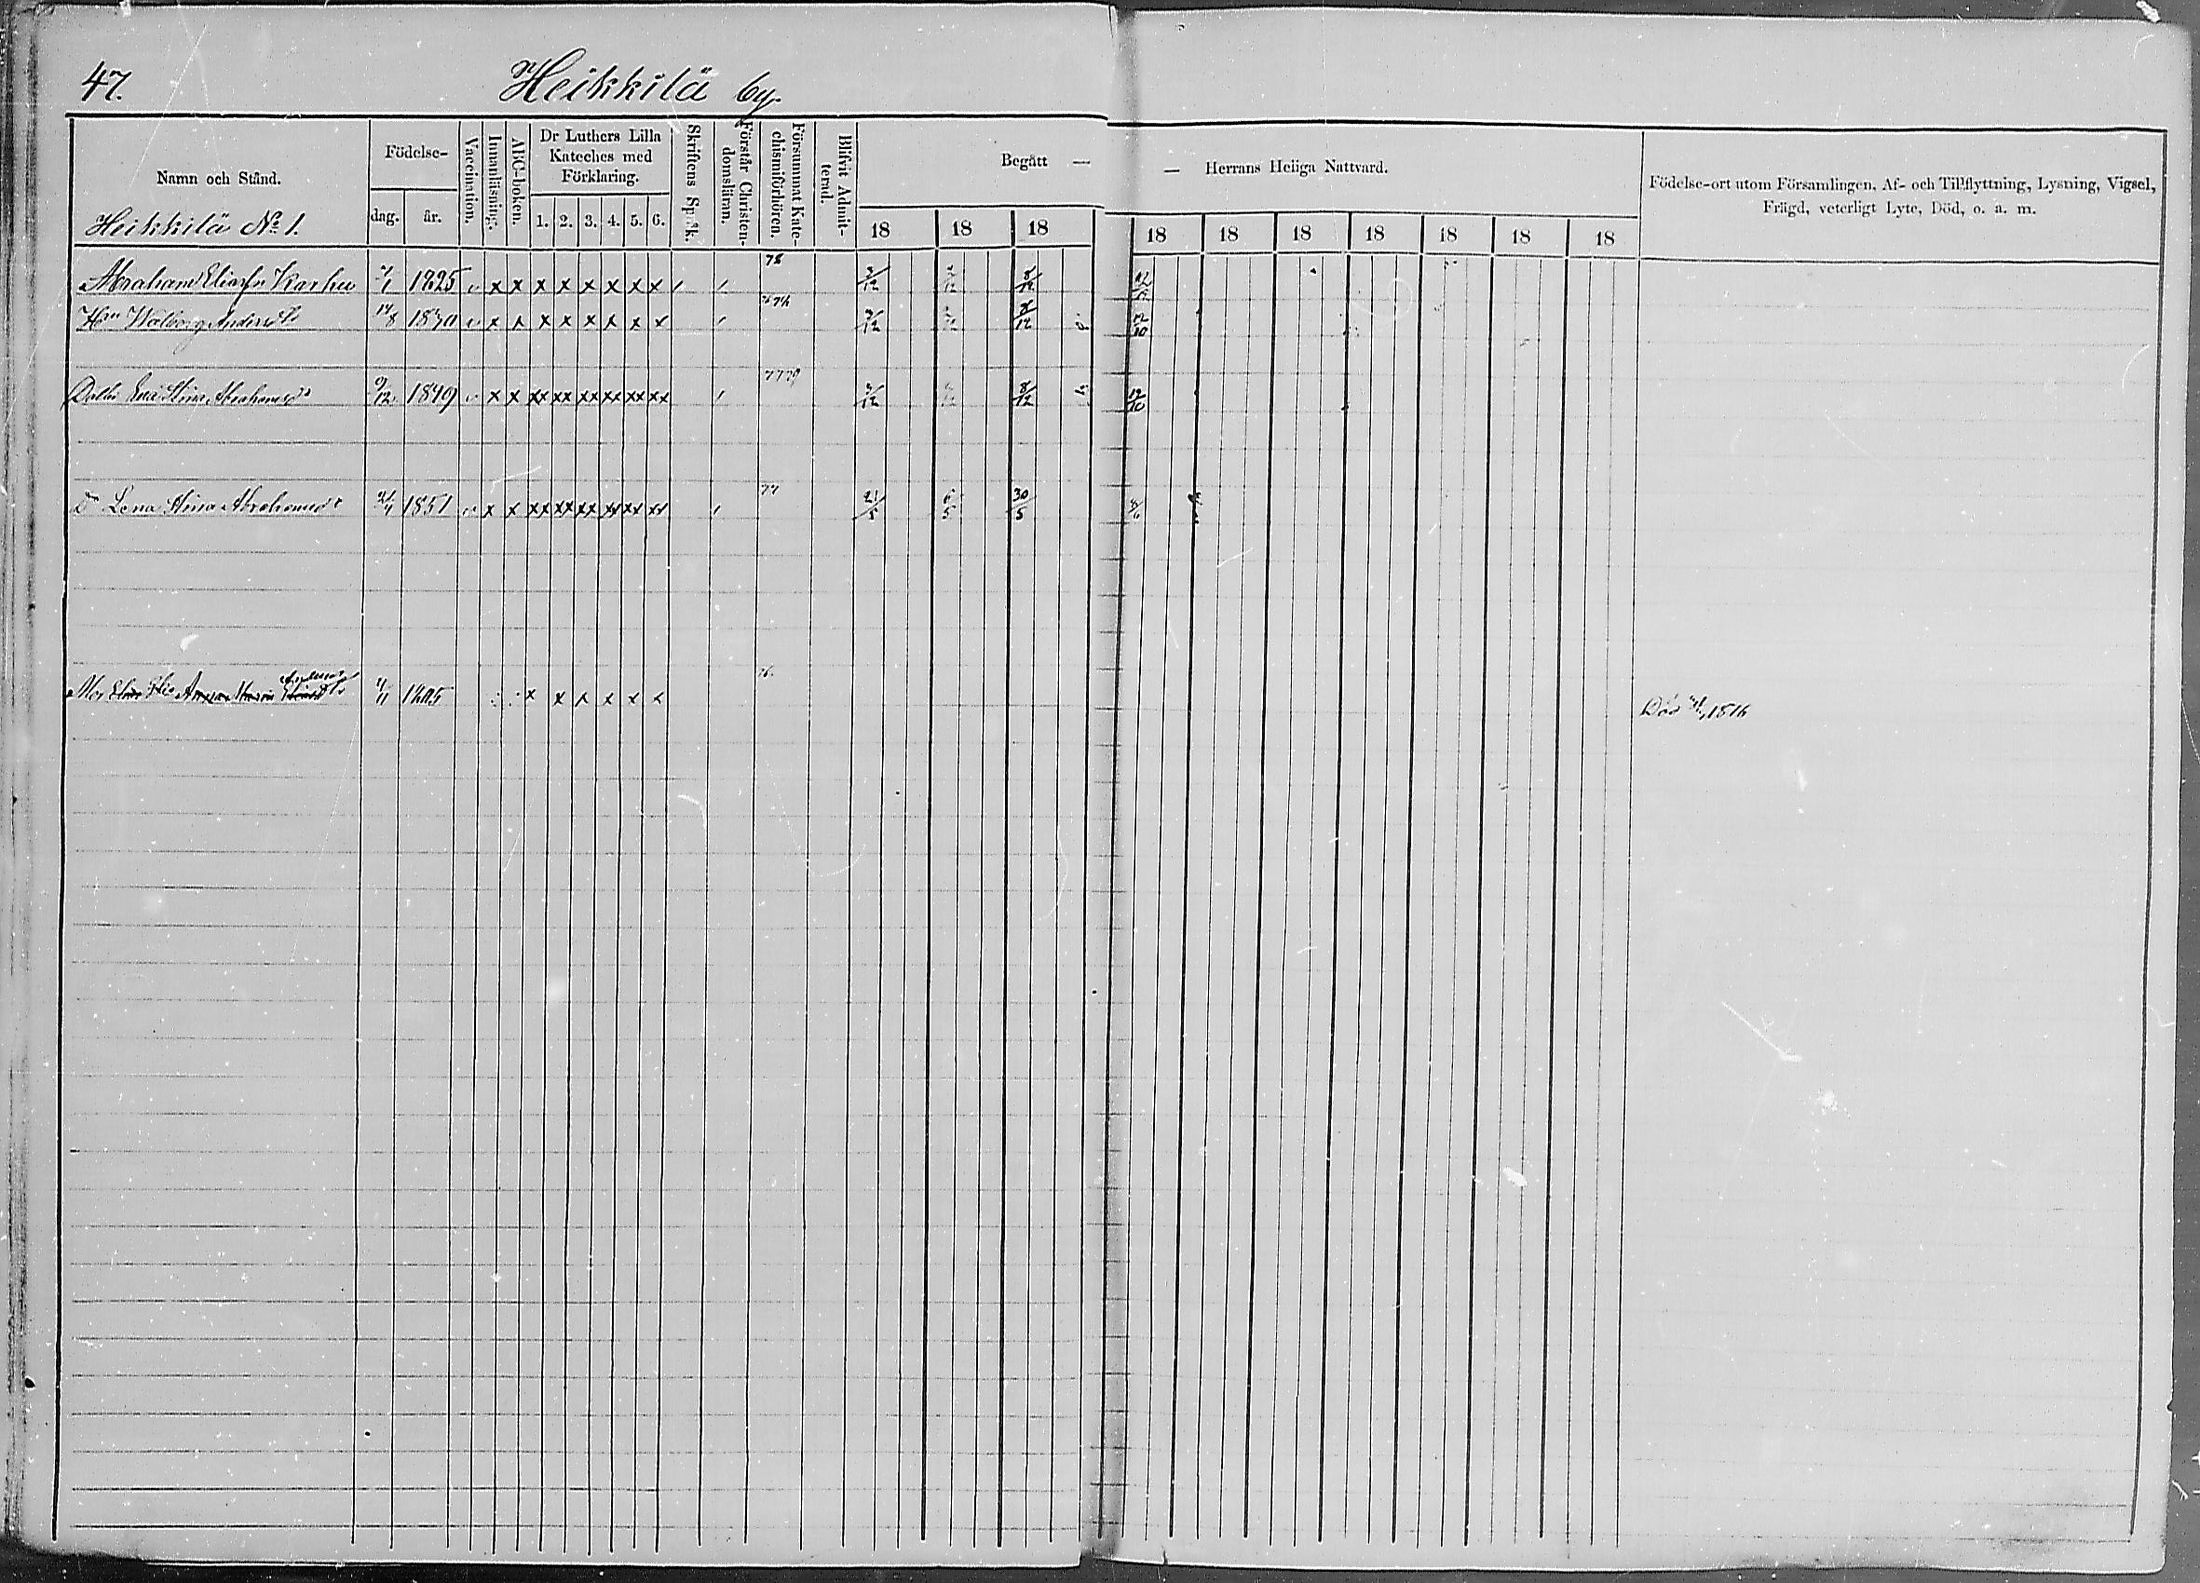 47. Heikkilä by.
Namn och Stånd. Födelse- dag. år. Vaccination. Innanläsning. ABC-boken. Dr Luthers Lilla Kateches med Förklaring. 1. 2. 3. 4. 5. 6. Skriftens Språk. Förstår Christendomsläran. Försummat Katechismiförhören. Blifvit Admitterad. Begått — — Herrans Heliga Nattvard. Födelse-ort utom Församlingen, Af- och Tillflyttning, Lysning, Vigsel,
Frägd, veterligt Lyte, Död, o. a. m.
Heikkilä No 1. 18 18 18 18 18 18 18 18 18 18
Abraham Eliasfn Karhu 1825 v x x x x x x x x 78 8/12
Hru Walborg Andersdr 14/8 1830 v x x x x x x x x 8/12 12/10
Dottr Eva Stina Abrahamsdr 9/12 1849 v x x xx xx xx xx xx xx 77 79 8/12 12/10
Dr Lena Stina Abrahamsdr 1851 v x x xx xx xx xx xx xx 77 21/5 6/5 30/5 8/6
Mor 1805 x x x x x x 76 Död 1876